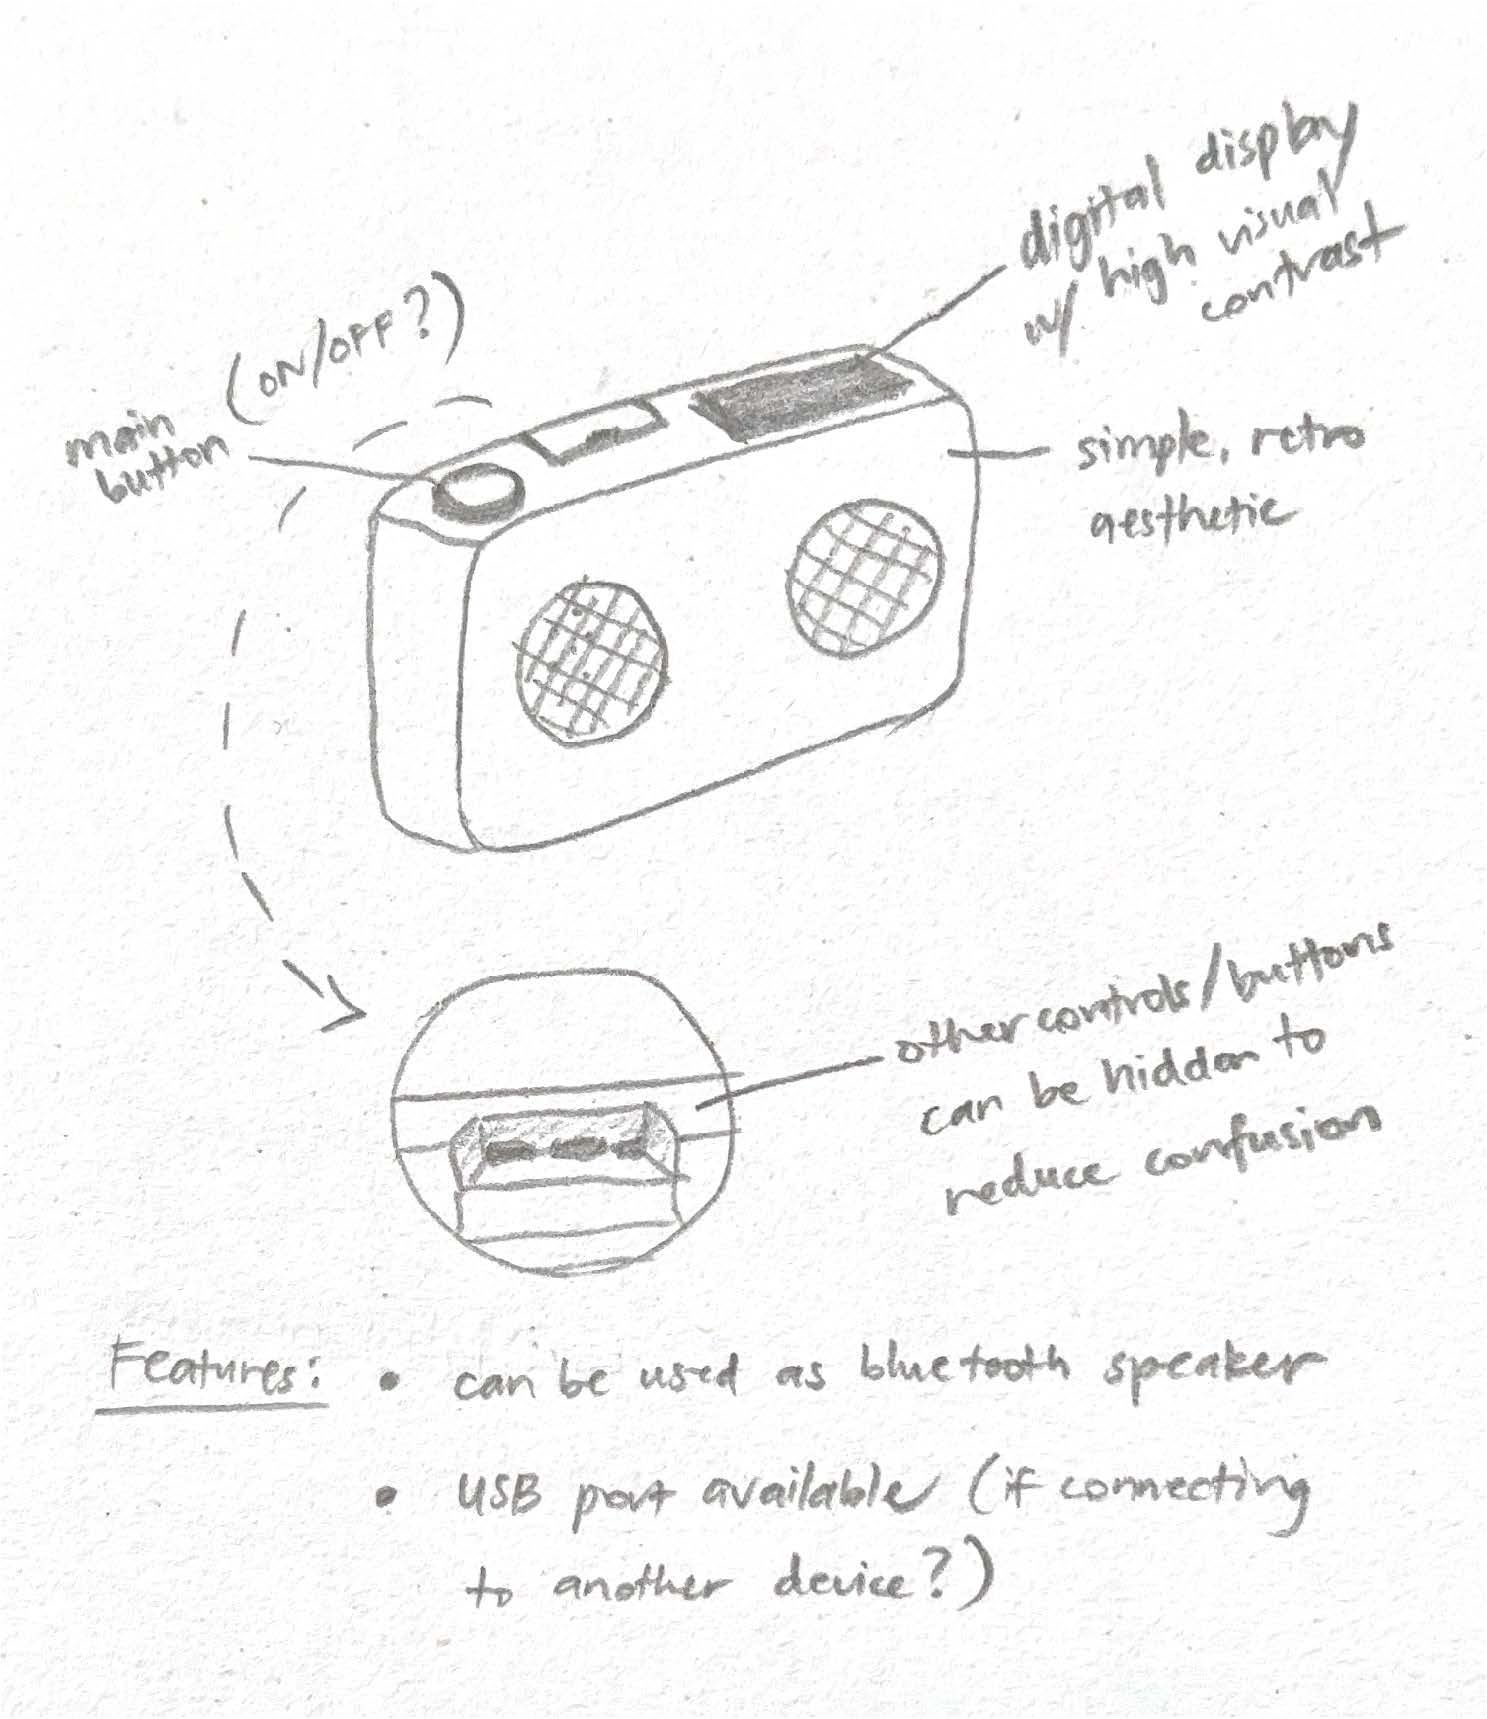 digital display
w/ high visual
contrast
(ON/OFF?)
main
button
simple, retro
aesthetic
other controls/buttons
can be hidden to
reduce confusion
Features:
• can be used as bluetooth speaker
• USB port available (if connecting
to another device?)